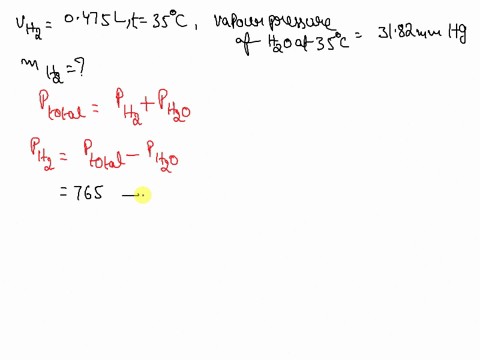 V_H2 = 0.475L, t = 35°C, vapour pressure of H2O at 35°C = 31.82 mm Hg
m_H2 = ?
P_total = P_H2 + P_H2O
P_H2 = P_total - P_H2O
= 765 —